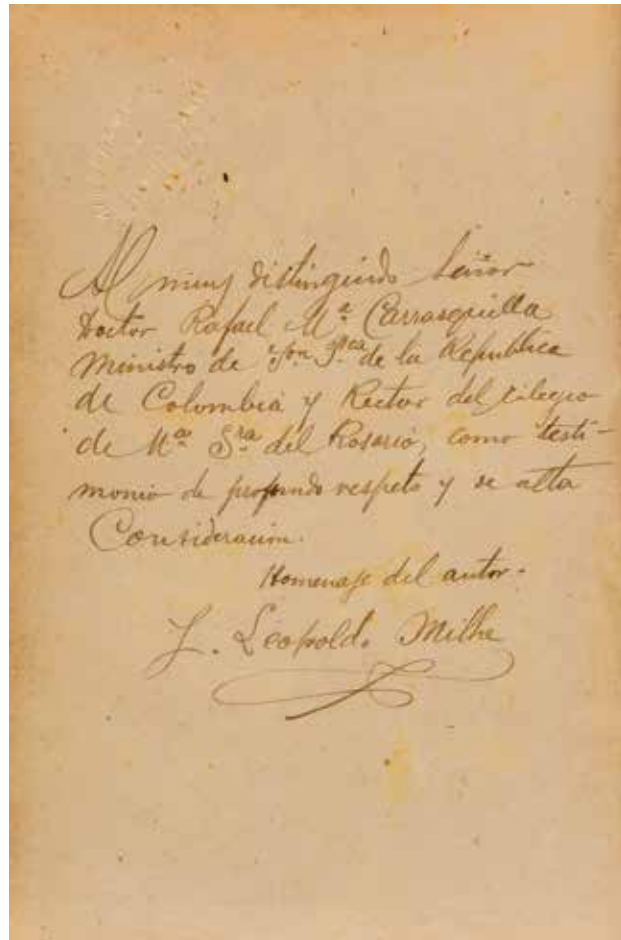 Al muy distinguido Señor
Doctor Rafael Mª Carrasquilla
Ministro de Yon Pca de la Republica
de Colombia y Rector del Colegio
de Nª Sra del Rosario, como testi-
monio de profundo respeto y de alta
Consideracion.
Homenaje del autor.
J. Leopoldo Milhe